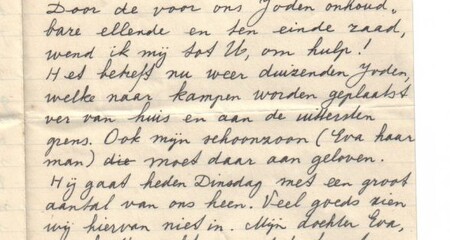 Door de voor ons Joden onhoud„
bare ellende en ten einde raad,
wend ik mij tot U, om hulp!
Het betreft nu weer duizenden Joden,
welke naar kampen worden geplaatst
ver van huis en aan de uitersten
grens. Ook mijn schoonzoon (Eva haar
man) die moet daar aan geloven.
Hij gaat heden Dinsdag met een groot
aantal van ons heen. Veel goeds zien
wij hiervan niet in. Mijn dochter Eva,